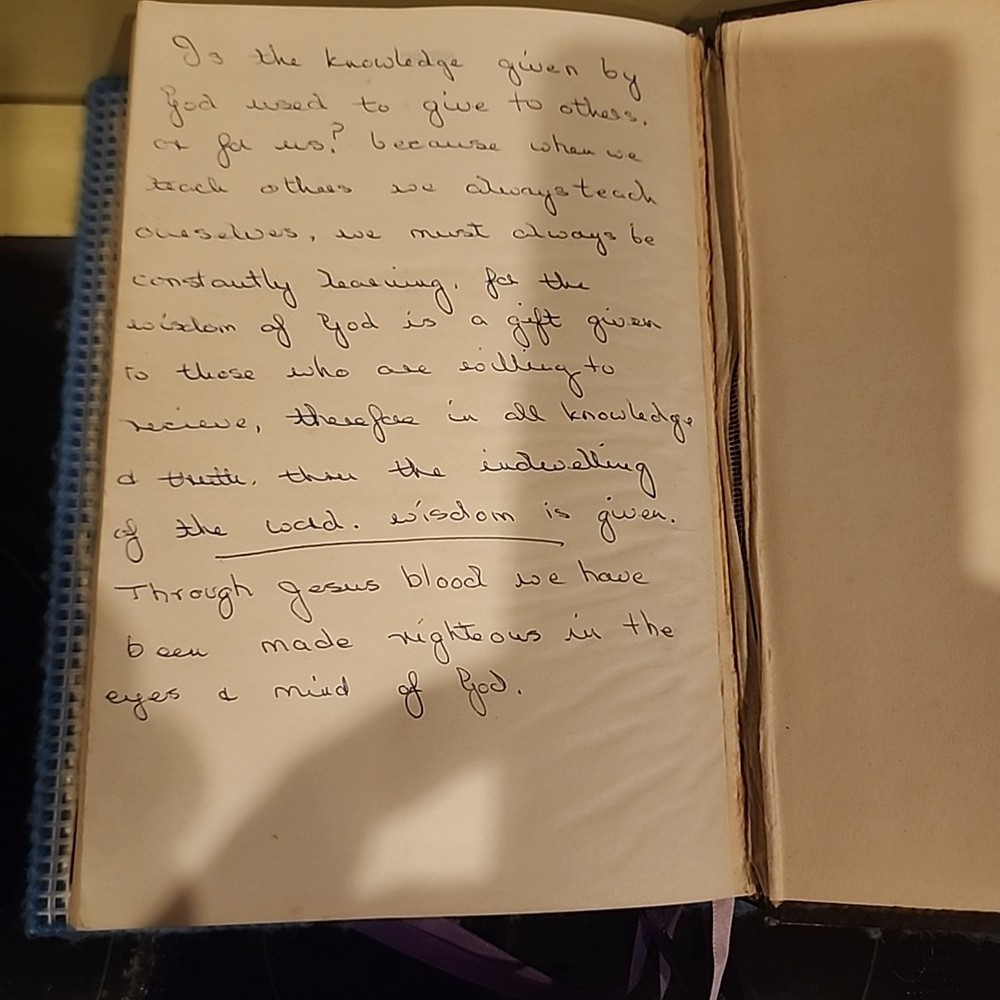 Is the knowledge given by
God used to give to others.
or for us? because when we
teach others we always teach
ourselves, we must always be
constantly learning. for the
wisdom of God is a gift given
to those who are willing to
recieve, therefore in all knowledge
& truth. thru the indwelling
of the word. wisdom is given.
Through Jesus blood we have
been made righteous in the
eyes & mind of God.